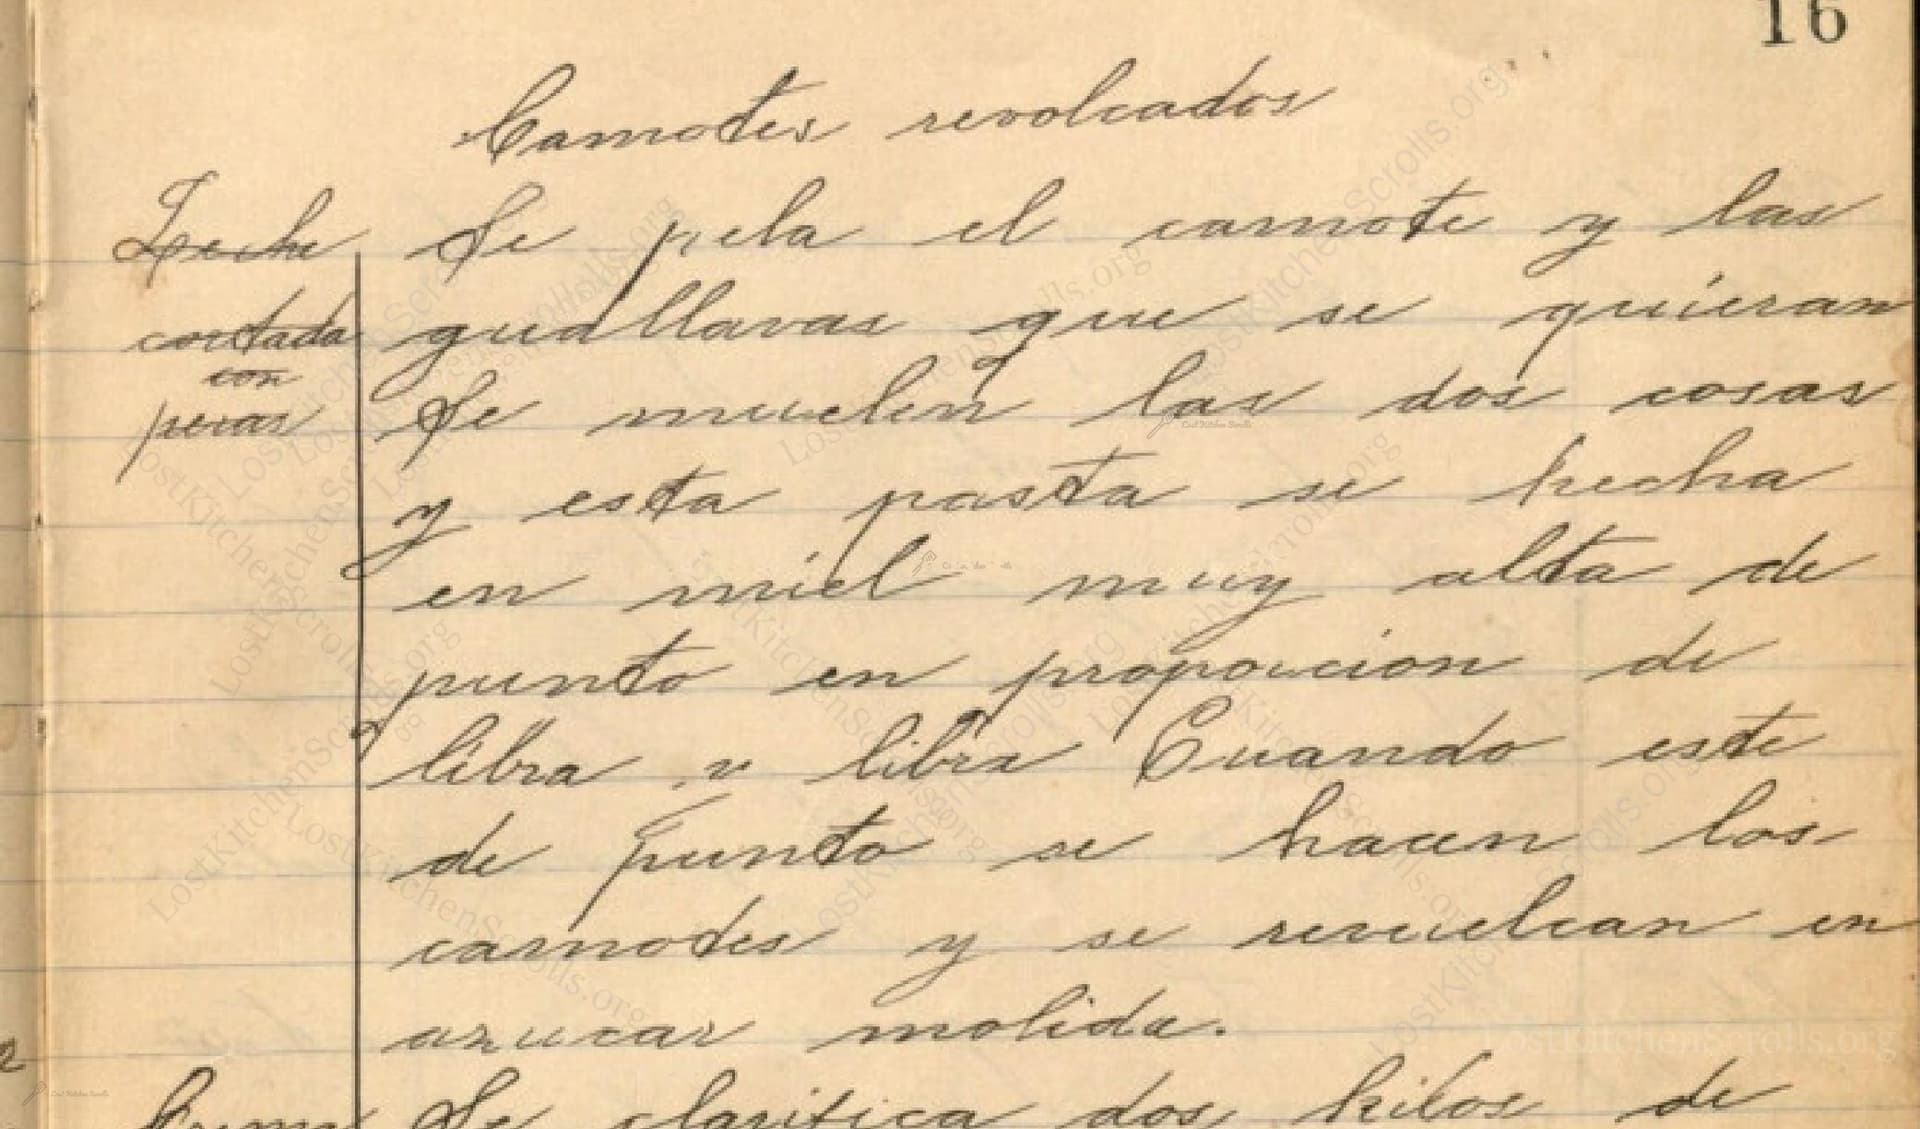 16
Camotes revolcados
Leche
cortada
con
peras
Se pela el camote y las
guallavas que se quieran
Se muelen las dos cosas
y esta pasta se hecha
en miel muy alta de
punto en proporcion de
libra y libra Cuando este
de punto se hacen los
camotes y se revuelcan en
azucar molida.
Se clarifica dos kilos de
LostKitchenScrolls.org